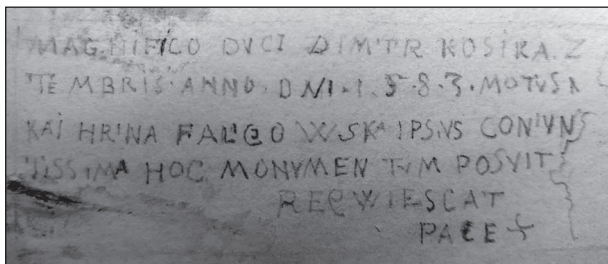 MAGNIFICO DVCI DIMTR KOSIRA Z
TE MBRIS · ANNO · DNI · 1 · 5 · 8 · 3 · MOTVS A
KAT HRINA FALCO WSKA IPSIVS CONIVNS
TISSIMA HOC MONVMEN TVM POSVIT
REQWIESCAT
PACE